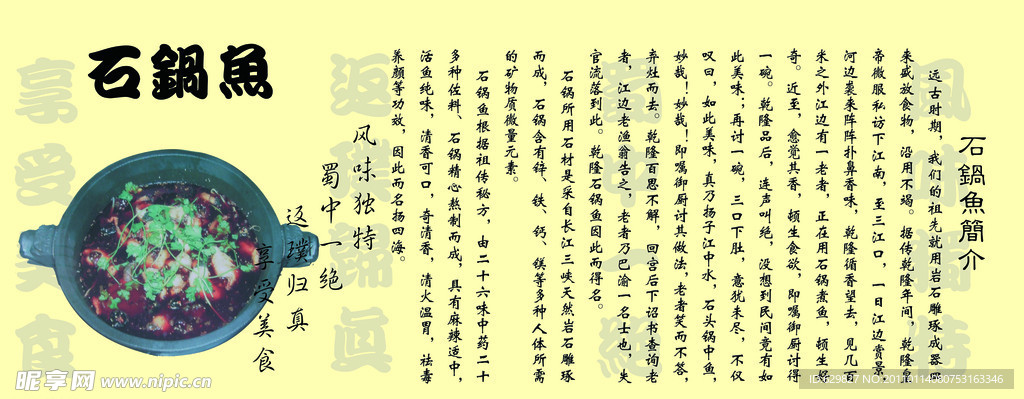 石鍋魚簡介
远古时期，我们的祖先就用岩石雕琢成器皿
来盛放食物，沿用不竭。据传乾隆年间，乾隆皇
帝微服私访下江南，至三江口，一日江边赏景，
河边袭来阵阵扑鼻香味，乾隆循香望去，见几百
米之外江边有一老者，正在用石锅煮鱼，顿生好
奇。近至，愈觉其香，顿生食欲，即嘱御厨讨得
一碗。乾隆品后，连声叫绝，没想到民间竟有如
此美味；再讨一碗，三口下肚，意犹未尽，不仅
叹曰，如此美味，真乃扬子江中水，石头锅中鱼，
妙哉！妙哉！即嘱御厨讨其做法，老者笑而不答，
弃灶而去。乾隆百思不解，回宫后下诏书查询老
者，江边老渔翁告之，老者乃巴渝一名士也，失
官流落到此。乾隆石锅鱼因此而得名。
石锅所用石材是采自长江三峡天然岩石雕琢
而成，石锅含有锌、铁、钙、镁等多种人体所需
的矿物质微量元素。
石锅鱼根据祖传秘方，由二十六味中药二十
多种佐料、石锅精心熬制而成，具有麻辣适中，
活鱼纯味，清香可口，奇清香，清火温胃，祛毒
养颜等功效，因此而名扬四海。
风味独特
蜀中一绝
返璞归真
享受美食
石鍋魚
风味独特
蜀中一绝
返璞歸真
享受美食
昵享网 www.nipic.cn